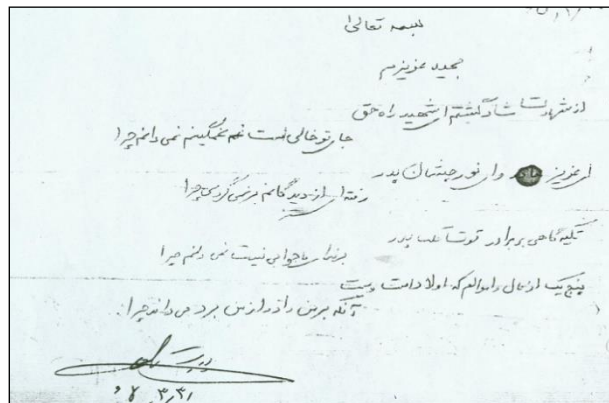 بسمه تعالی
مجید عزیزم
از شهادتت شاد گشتم ای شهید راه حق
جای تو خالی است غمگینم نمی دانم چرا
ای عزیز وای نور چشمان پدر
رفته ای از دیدگانم بر نمی گردی چرا
تکیه گاهی بر برادر قوت قلب پدر
نیست نمی دانم چرا
پنج یک از مال و اموالم که اولاد است
آنکه بر من داد و از من برد می داند چرا